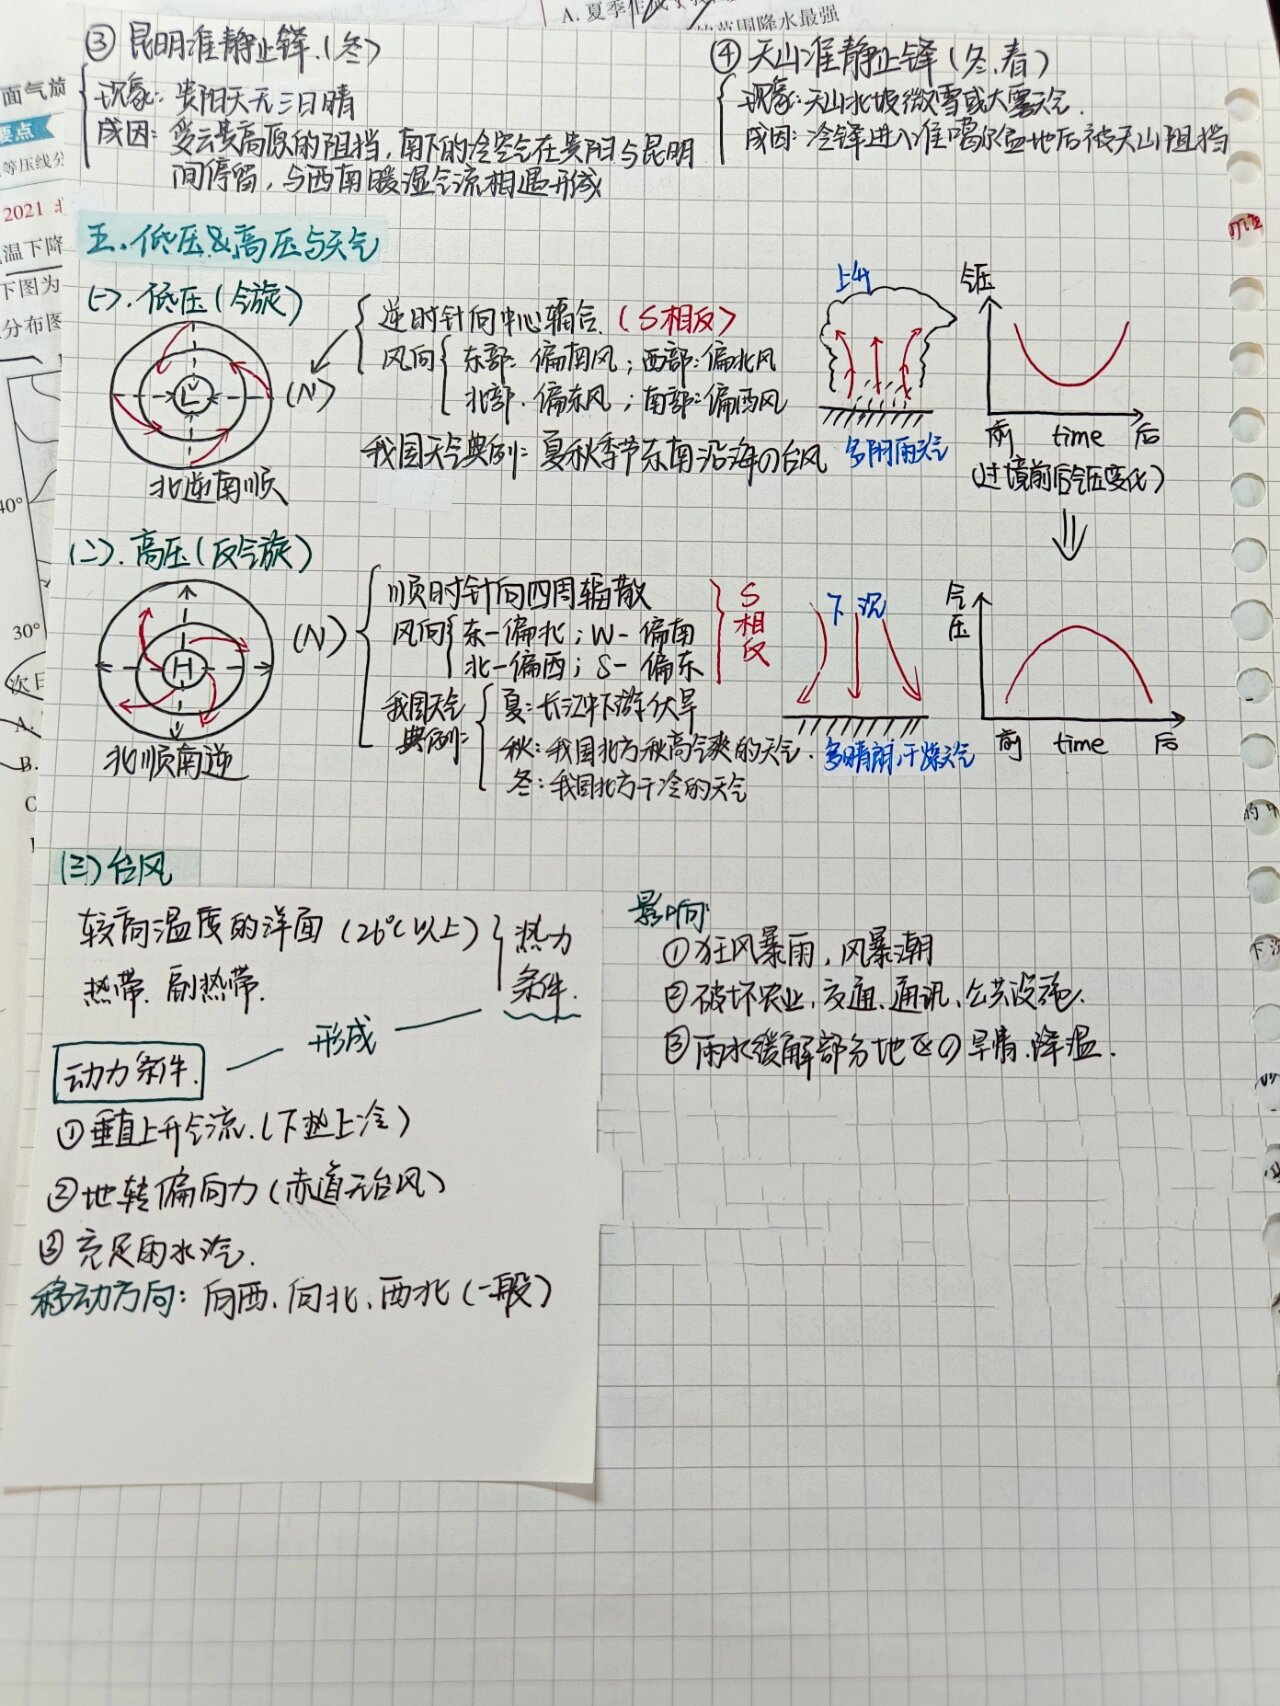 A. 夏季
的范围降水最强
面气旋
要点
等压线分
2021 北
温下降
下图为
分布图
40°
30°
次日
A.
B.
C
③ 昆明准静止锋.(冬)
现象: 贵阳天无三日晴
成因: 受云贵高原的阻挡, 南下的冷空气在贵阳与昆明
间停留, 与西南暖湿气流相遇形成
④ 天山准静止锋 (冬、春)
现象: 天山北坡微雪或大雾天气.
成因: 冷锋进入准噶尔盆地后被天山阻挡
五. 低压&高压与天气
(一). 低压 (气旋)
L
(N)
北逆南顺
逆时针向中心辐合. (S相反)
风向 东部: 偏南风 ; 西部: 偏北风
北部. 偏东风 ; 南部: 偏西风
我国天气典例: 夏秋季节东南沿海の台风
上升
多阴雨天气
气压
前 time 后
(过境前后气压变化)
(二). 高压 (反气旋)
H
(N)
北顺南逆
顺时针向四周辐散
风向 东-偏北 ; W-偏南
北-偏西 ; S-偏东
S相反
我国天气典例:
夏: 长江中下游伏旱
秋: 我国北方秋高气爽的天气.
冬: 我国北方干冷的天气
下沉
多晴朗,干燥天气
气压
前 time 后
(三) 台风
较高温度的洋面 (26℃以上)
热带. 副热带.
热力条件.
形成
动力条件.
①垂直上升气流.(下热上冷)
②地转偏向力 (赤道无台风)
③ 充足的水汽.
移动方向: 向西、向北、西北 (一般)
影响
①狂风暴雨, 风暴潮
②破坏农业、交通、通讯、公共设施.
③雨水缓解部分地区の旱情、降温.